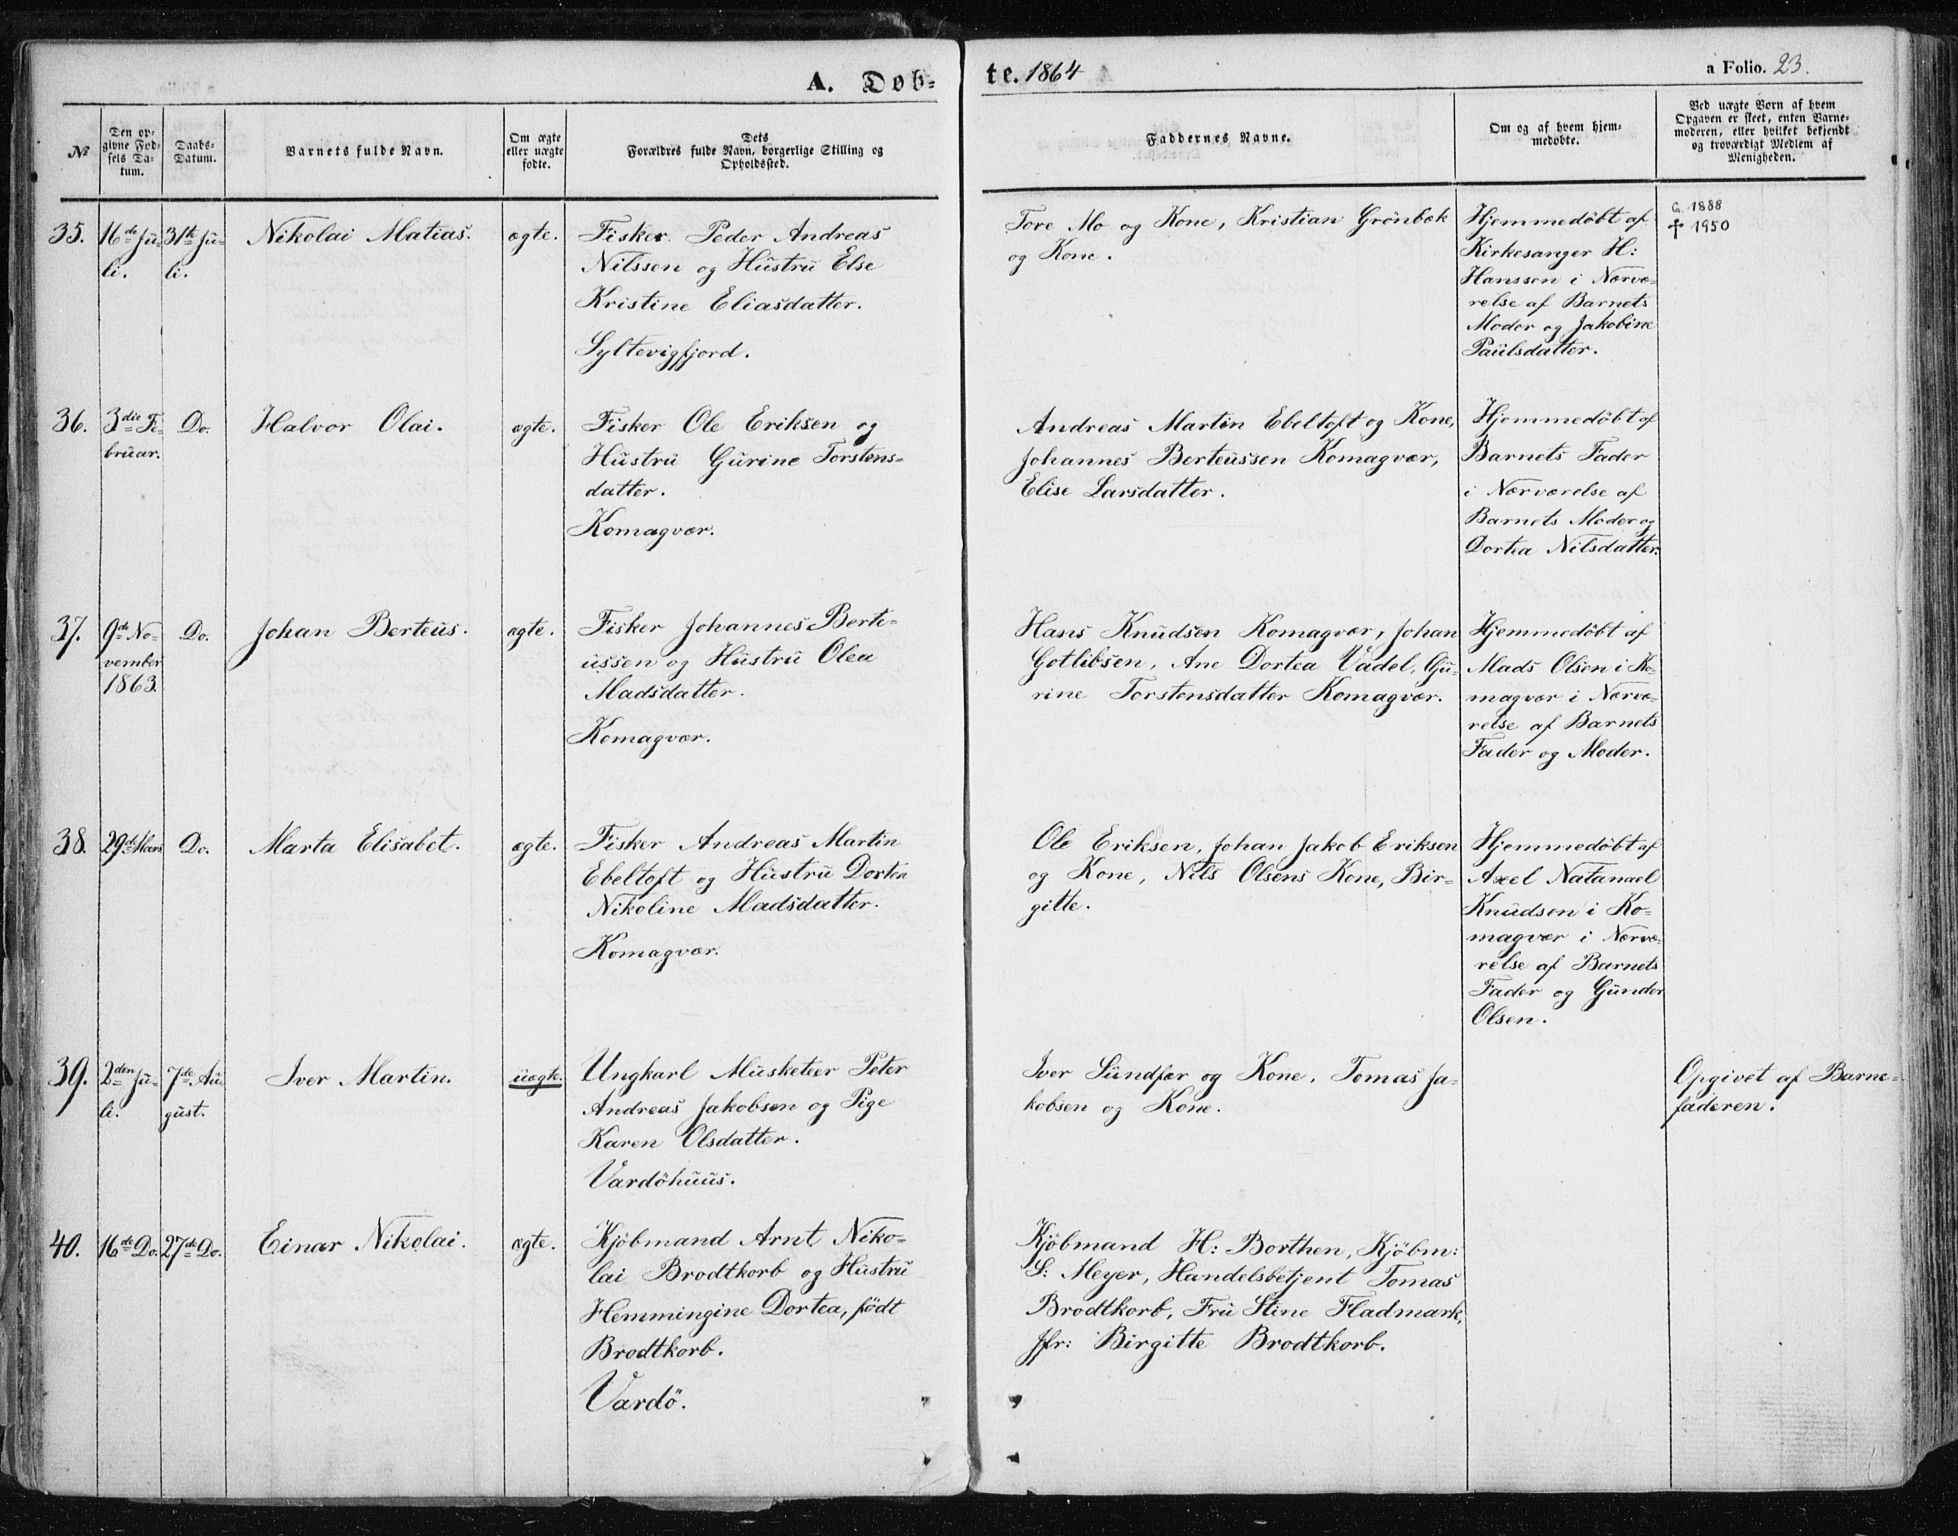 A. Døb-
te. 1864
a Folio. 23.
№
Den op-
givne Fød-
sels Da-
tum.
Daabs-
Datum.
Barnets fulde Navn.
Om ægte
eller uægte
fødte.
Dets
Forældres fulde Navn, borgerlige Stilling og
Opholdssted.
Faddernes Navne.
Om og af hvem hjem-
medøbte.
Ved uægte Born af hvem
Opgaven er skeet, enten Barne-
moderen, eller hvilket bekjendt
og troværdigt Medlem af
Menigheden.
35.
16de Ju-
li.
31te Ju-
li.
Nikolai Matias.
ægte.
Fisker Peder Andreas
Nilssen og Hustru Else
Kristine Eliasdatter.
Syltevigfjord.
Tore Mo og Kone, Kristian Grönbæk
og Kone.
Hjemmedøbt af
Kirkesanger H:
Hanssen i Nærvæ-
relse af Barnets
Moder og Jakobine
Paulsdatter.
G. 1888
† 1950
36.
3die Fe-
bruar.
Do.
Halvor Olai.
ægte.
Fisker Ole Eriksen og
Hustru Gurine Torstens-
datter.
Komagvær.
Andreas Martin Ebeltoft og Kone,
Johannes Berteussen Komagvær,
Elise Larsdatter.
Hjemmedøbt af
Barnets Fader
i Nærværelse af
Barnets Moder og
Dortea Nilsdatter.
37.
9de No-
vember
1863.
Do.
Johan Berteus.
ægte.
Fisker Johannes Berte-
ussen og Hustru Olea
Madsdatter.
Komagvær.
Hans Knudsen Komagvær, Johan
Gotlibsen, Ane Dortea Vadel, Gu-
rine Torstensdatter Komagvær.
Hjemmedøbt af
Mads Olsen i Ko-
magvær i Nærvæ-
relse af Barnets
Fader og Moder.
38.
29de Mars
Do.
Marta Elisabet.
ægte.
Fisker Andreas Martin
Ebeltoft og Hustru Dortea
Nikoline Madsdatter.
Komagvær.
Ole Eriksen, Johan Jakob Eriksen
og Kone, Nils Olsens Kone, Bir-
gitte.
Hjemmedøbt af
Axel Natanael
Knudsen i Ko-
magvær i Nærvæ-
relse af Barnets
Fader og Gunder
Olsen.
39.
2den Ju-
li.
7de Au-
gust.
Iver Martin.
uægte.
Ungkarl Musketeer Peter
Andreas Jakobsen og Pige
Karen Olsdatter.
Vardöhuus.
Iver Sundfær og Kone, Tomas Ja-
kobsen og Kone.
Opgivet af Barne-
faderen.
40.
16de Do.
27de Do.
Einar Nikolai.
ægte.
Kjöbmand Arnt Niko-
lai Brodtkorb og Hustru
Hemmingine Dortea, födt
Brodtkorb.
Vardö.
Kjöbmand H: Borthen, Kjöbm:
S: Meyer, Handelsbetjent Tomas
Brodtkorb, Fru Stine Fladmark,
Jfr: Birgitte Brodtkorb.